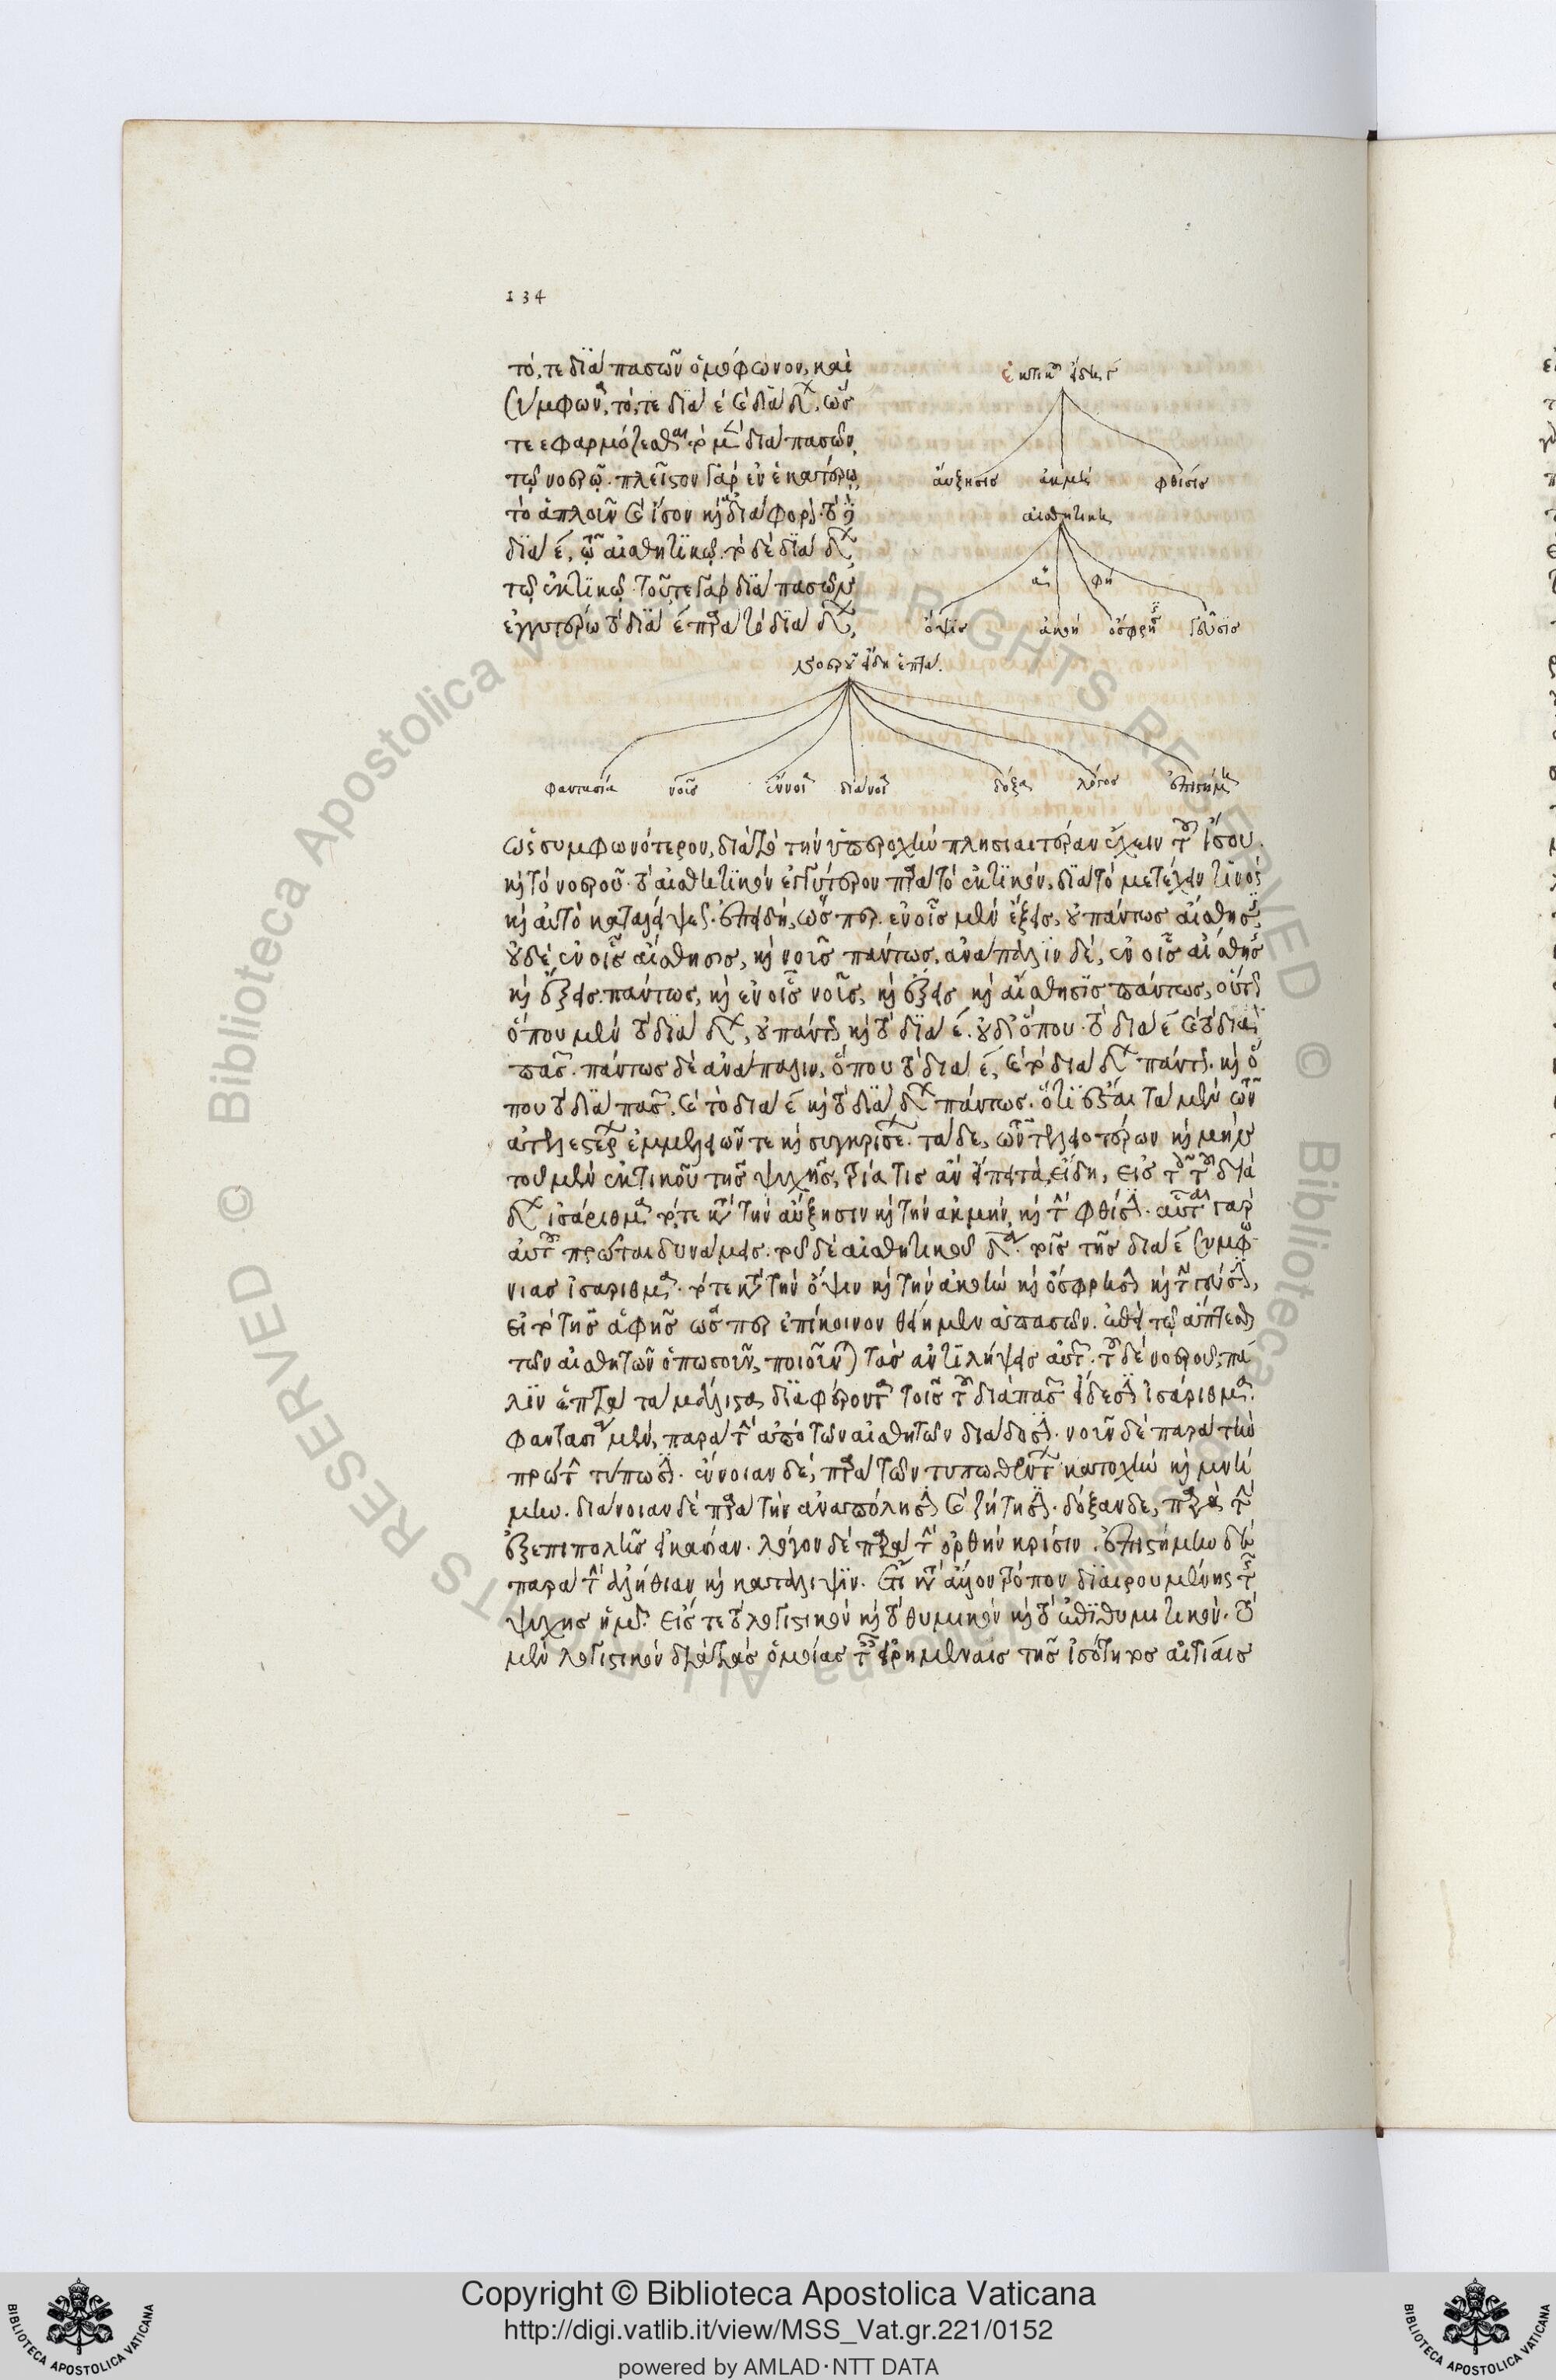 134
τό, τε διὰ πασῶν ὁμόφωνον, καὶ
συμφων, τό, τε διὰ ε καὶ διὰ δ, ὥσ
τε εφαρμόζεσθαι τὸ μὲν διὰ πασῶν
τῷ νοερῷ. πλεῖστον γὰρ ἐν ἑκατέρῳ
τὸ ἁπλοῦν καὶ ἴσον καὶ διάφορ. τὸ δὲ
διὰ ε, τῷ αἰσθητικῷ. τὸ δὲ διὰ δ,
τῷ ἑκτικῷ. τοῦτε γὰρ διὰ πασῶν
ἐγγυτέρω τὸ διὰ ε παρὰ τὸ διὰ δ,
ἑκτικοῦ εἴδη γ
αὔξησις ἀκμὴ φθίσις
αἰσθητική
ἁ φή
ὄψις ἀκοή ὄσφρη γεῦσις
νοεροῦ εἴδη ἑπτά.
φαντασία νοῦς ἔννοι διάνοι δόξα λόγος ἐπιστήμη
ὡς συμφωνότερον, διὰ τὸ τὴν ὑπεροχὴν πλησιαιτέραν ἔχειν τοῦ ἴσου.
καὶ τὸ νοεροῦ. τὸ αἰσθητικὸν ἐγγύτερον παρὰ τὸ ἑκτικόν, διὰ τὸ μετέχειν τινὸς
καὶ αὐτὸ καταλήψεως. ἐπειδή, ὥσπερ ἐν οἷς μὲν ἕξις, οὐ πάντως αἴσθησις,
οὐδὲ ἐν οἷς αἴσθησις, καὶ νοῦς πάντως, ἀνάπαλιν δέ, ἐν οἷς αἴσθησις
καὶ ἕξις πάντως, καὶ ἐν οἷς νοῦς, καὶ ἕξις καὶ αἴσθησις πάντως, οὕτως
ὅπου μὲν τὸ διὰ δ, οὐ πάντως καὶ τὸ διὰ ε. οὐδ' ὅπου τὸ διὰ ε καὶ τὸ διὰ
πασ. πάντως δὲ ἀνάπαλιν, ὅπου τὸ διὰ ε, καὶ τὸ διὰ δ πάντως. καὶ ὅ
που τὸ διὰ πασ, καὶ τὸ διὰ ε καὶ τὸ διὰ δ πάντως. ὅτι ἔσται τὰ μὲν τῶν
ἀτελεστέρων ἐμμελειῶν τε καὶ συγκρίσε. τὰ δε, τῶν τελειοτέρων καὶ μὴν
τοῦ μὲν ἑκτικοῦ τῆς ψυχῆς, τρία τις ἂν εἴποι τὰ εἴδη, εἰς τοῖς τοῦ διὰ
δ ἰσάριθμα τό, τε κατὰ τὴν αὔξησιν καὶ τὴν ἀκμὴν, καὶ τὴν φθίσιν. αὗται γὰρ
αὐτοῦ πρῶται δυνάμεις. τοῦ δὲ αἰσθητικοῦ δ. τοῖς τῆς διὰ ε συμφ
νιας ἰσάριθμα. τό τε κατὰ τὴν ὄψιν καὶ τὴν ἀκοὴν καὶ ὄσφρησιν καὶ τὴν γεῦσιν,
εἰ τὸ τῆς ἁφῆς ὥσπερ ἐπίκοινον θείημεν ἁπασῶν. ἐπεὶ τῷ ἅπτεσθαι
τῶν αἰσθητῶν ὁπωσοῦν, ποιοῦνται τὰς ἀντιλήψεις αὐτῶν. τοῦ δὲ νοεροῦ, πά
λιν ἑπτὰ τὰ μάλιστα διαφέροντα τοῖς τοῦ διὰ πασῶν εἴδεσιν ἰσάριθμα.
φαντασίαν μὲν, παρὰ τὴν ἀπὸ τῶν αἰσθητῶν διάδοσιν. νοῦν δὲ παρὰ τὴν
πρώτην τύπωσιν. ἔννοιαν δέ, παρὰ τῶν τυπωθέντων κατοχὴν καὶ μνή
μην. διάνοιαν δὲ παρὰ τὴν ἀναπόλησιν καὶ ζήτησιν. δόξαν δε, παρὰ τὴν
ἐξ ἐπιπολῆς εἰκασίαν. λόγον δὲ παρὰ τὴν ὀρθὴν κρίσιν. ἐπιστήμην δὲ
παρὰ τὴν ἀλήθειαν καὶ κατάληψιν. ἔτι κατ' ἄλλον τρόπον διαιρουμένης τῆς
ψυχῆς ἡμῶν. εἴς τε τὸ λογιστικὸν καὶ τὸ θυμικὸν καὶ τὸ ἐπιθυμητικόν. τὸ
μὲν λογιστικὸν διὰ τὰς ὁμοίας ταῖς εἰρημέναις τῆς ἰσότητος αἰτίαις
Copyright © Biblioteca Apostolica Vaticana
http://digi.vatlib.it/view/MSS_Vat.gr.221/0152
powered by AMLAD·NTT DATA